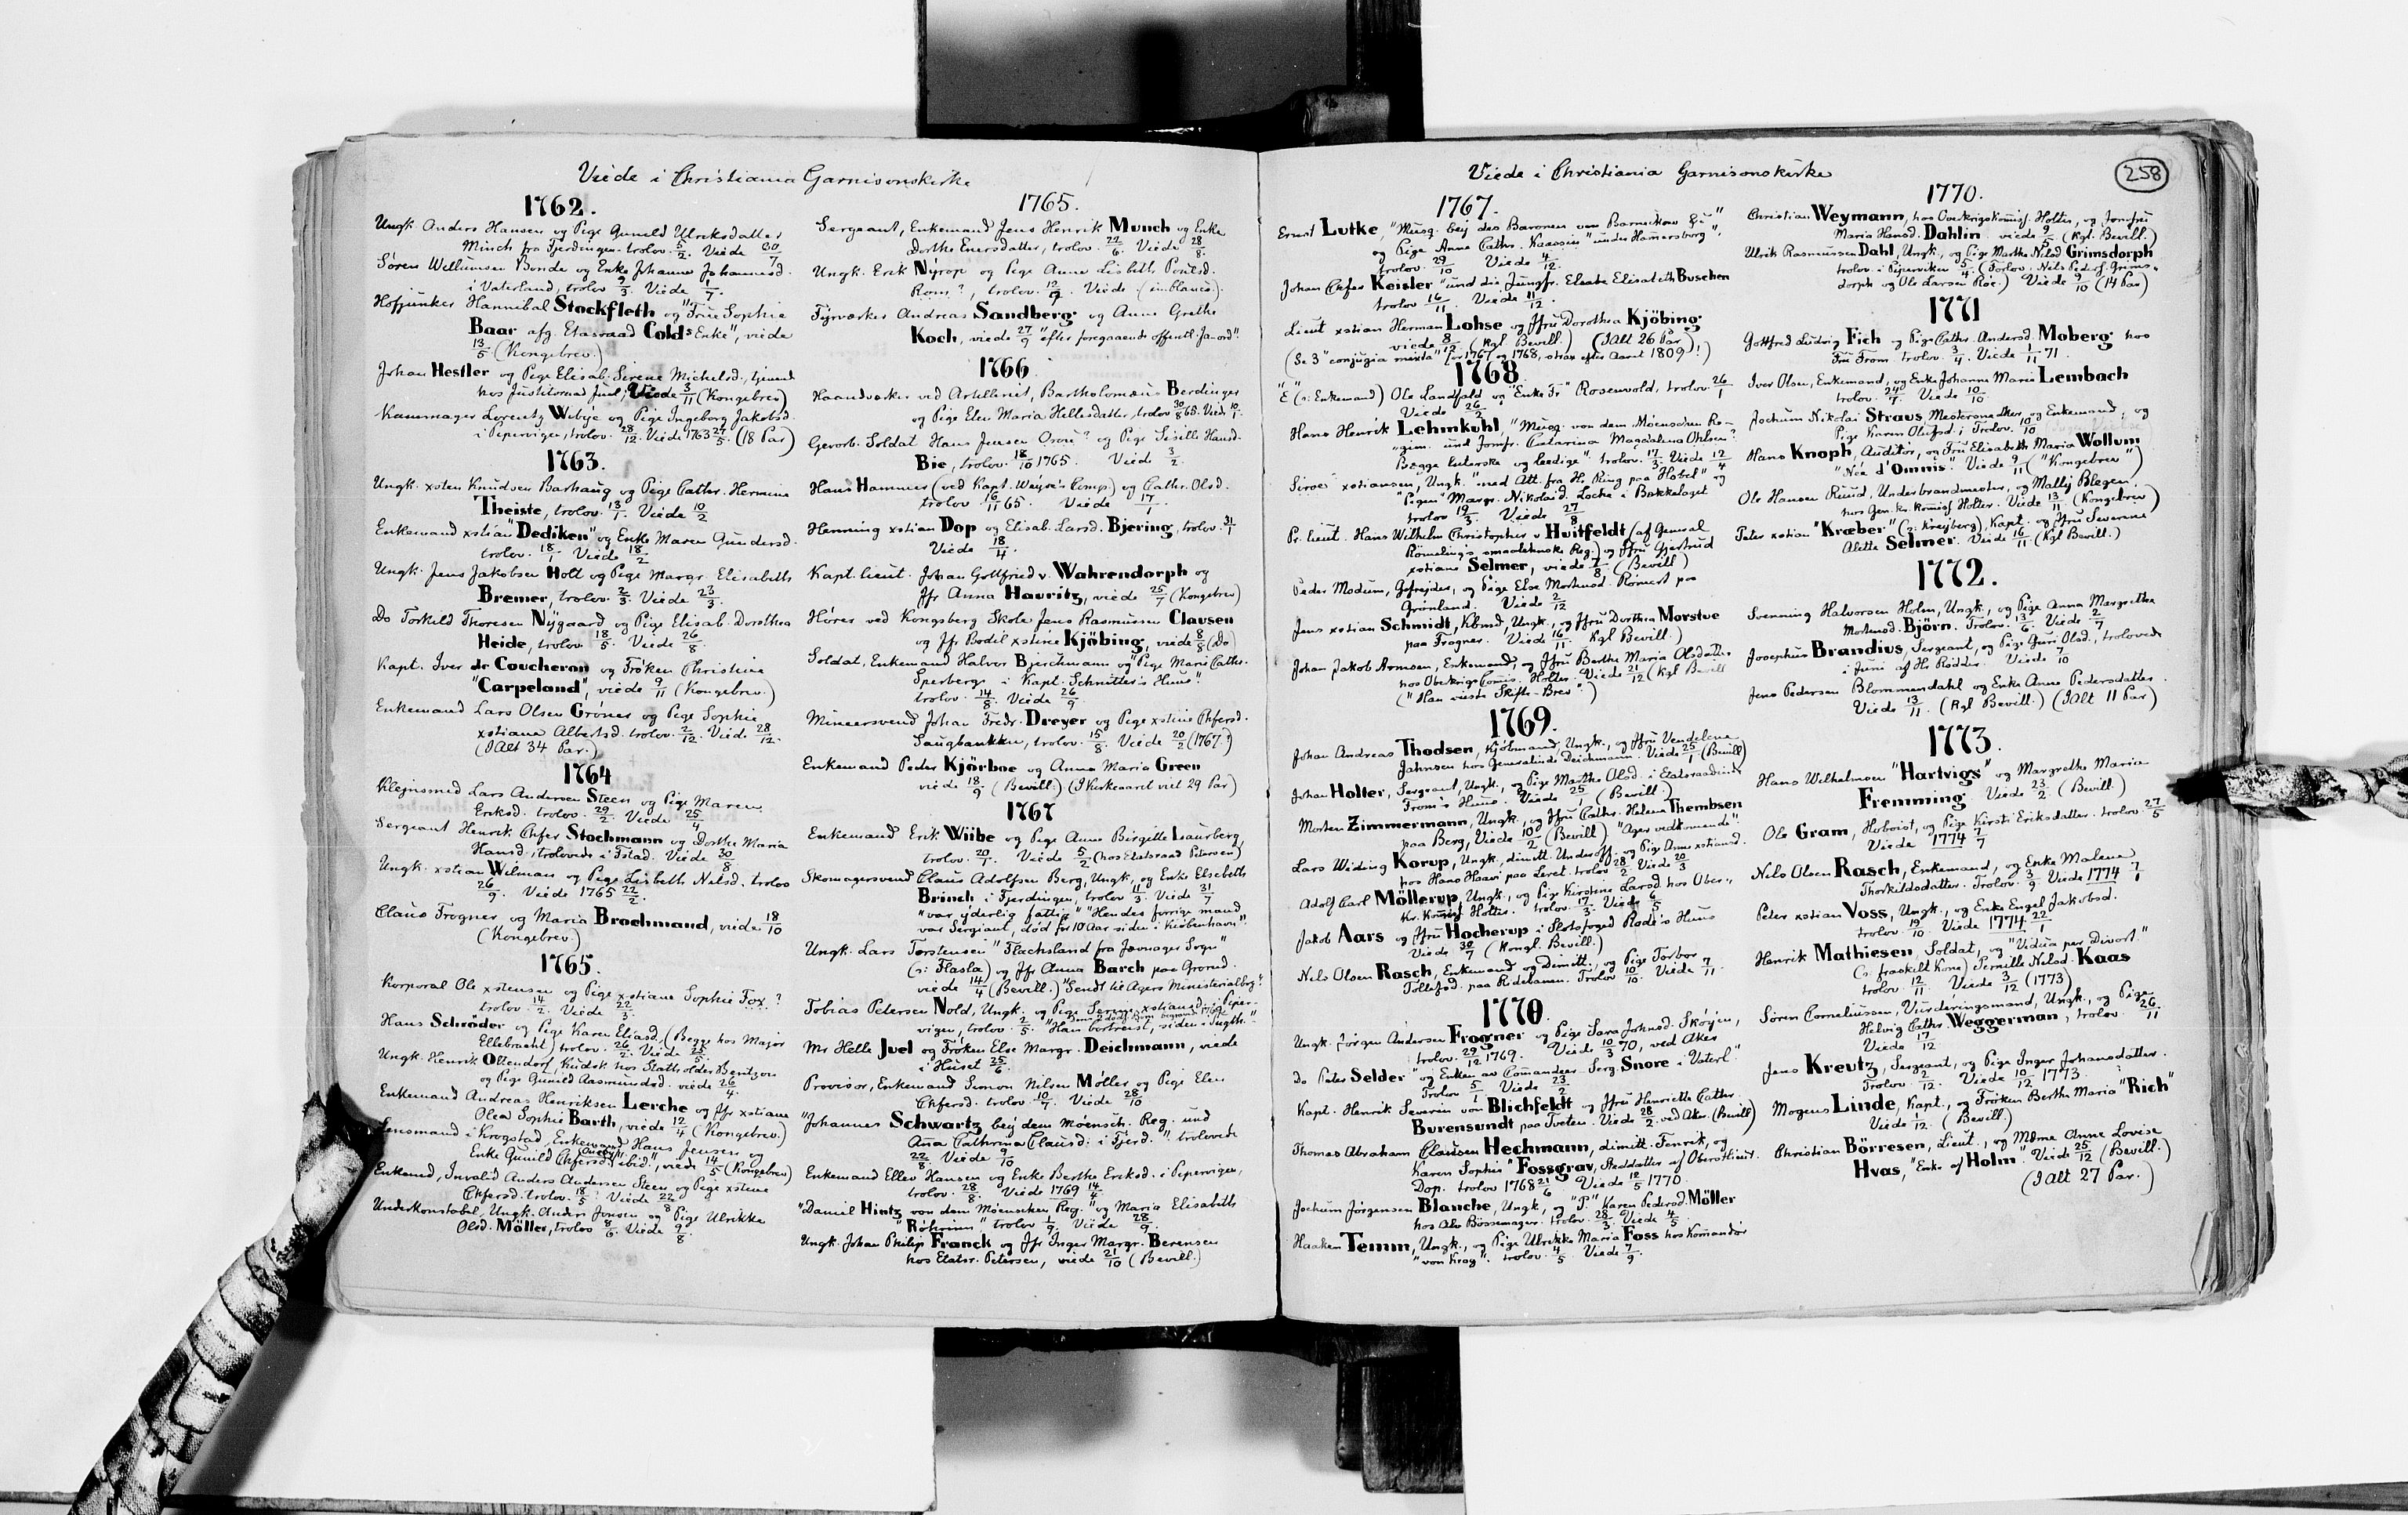 Viede i Christiania Garnisonskirke
1762.
Ungk. Anders Hansen og Pige Gunild Ulriksdatter
Minch fra Fjerdingen. trolov. 5/2. Viede 30/7
Søren Willumsen Bonde og Enke Johanne Johannesd.
i Vaterland, trolov 9/3. Viede 1/7.
Hofjunker Hannibal Stockfleth og "Frue Sophie
Baar afg. Etatsraad Colds Enke", viede
13/5 (Kongebrev.)
Johan Hesller og Pige Elisab. Sirene Michelsd., tjenend
hos Justitsraad Juel, Viede 3/11 (Kongebrev)
Kammager Lorentz Wibye og Pige Ingeborg Jakobsd.
i Pipervigen, trolov. 28/12. Viede 1763 27/5. (18 Par)
1763.
Ungk. xsten Knudsen Barhaug og Pige Cathr. Hermine
Theiste, trolov. 13/1. Viede 10/2
Enkemand xstian "Dediken" og Enke Maren Gundersd.
trolov. 18/1 Viede 18/2
Ungk. Jens Jakobsen Holt og Pige Margr. Elisabeth
Bremer, trolov. 2/3. Viede 23/3.
Do Torkild Thoresen Nÿgaard og Pige Elisab. Dorothea
Heide, trolov. 18/5. Viede 26/8.
Kapt. Iver de Coucheron og Fröken Christine
"Carpeland", viede 9/11 (Kongebrev.)
Enkemand Lars Olsen Gröner og Pige Sophie
xstiane Albertsd. trolov. 2/12. Viede 28/12.
(Ialt 34 Par.)
1764
Klejnsmed Lars Andersen Steen og Pige Maren
Eriksd. trolov. 29/2. Viede 25/4
Sergeant Henrik Chfer Stochmann og Dorthe Maria
Hansd. trolovede i Fstad. Viede 30/8
Ungk. xstian Wilman og Pige Lisbeth Nilsd. trolov
26/9. Viede 1765 22/2.
Claus Frogner og Maria Brochmand, viede 18/10
(Kongebrev.)
1765.
Korporal Ole xstensen og Pige xstiane Sophie Fox?
trolov. 14/2. Viede 22/3
Hans Schröder og Pige Karen Eliasd. (Begge hos Major
Ellebracht) trolov. 26/2. Viede 25/5.
Ungk. Henrik Ottendorf, Kudsk hos Statholder Bentzon
og Pige Gunild Aasmundsd. viede 26/4.
Enkemand Andreas Henriksen Lerche og Jfr xstiane
Olea Sophie Barth, viede 12/4 (Kongebrev.)
Lensmand i Krogstad, Enkemand Hans Jensen og
Enke Gunild Chfersd. ibid.", viede 14/5 (Kongebrev)
Enkemd, Invalid Anders Andersen Steen og Pige xstene
Chfersd. trolov. 18/5? Viede 22/8
Underkonstabel, Ungk. Anders Jensen og Pige Ulrikke
Olsd. Möller, trolov 8/6. Viede 9/8.
1765.
Sergeant, Enkemand Jens Henrik Munch og Enke
Dorthe Enersdatter, trolov. 22/6. Viede 28/8.
Ungk. Erik Nÿrop og Pige Anne Lisbeth Povlsd.
Rom?, trolov. 12/7. Viede (in blanco).
Fyrværker Andreas Sandberg og Anne Grethe
Koch, viede 27/9 "efter foregaaende offentl. Ja-ord".
1766.
Haandværker ved Artilleriet, Bartholomæus Berdinger
og Pige Elen Maria Hellesdatter, trolov 30/8 65. Viede 10/1.
Gevorb. Soldat Hans Jensen Osou? og Pige Sisille Hansd.
Bie, trolov. 18/10 1765. Viede 3/2.
Hans Hammer (ved Kapt. Weyse's Komp.) og Cathr. Olsd.
trolov. 16/11 65. Viede 17/1.
Henning xstian Dop og Elisab. Larsd. Bjering, trolov. 31/1
Viede 18/4.
Kapt. lieut. Johan Gottfried v. Wahrendorph og
Jfr Anna Hauritz, viede 25/7 (Kongebrev)
Hörer ved Kongsberg Skole Jens Rasmussen Clausen
og Jfr. Bodil xstine Kjöbing, viede 8/8 (Do)
Soldat, Enkemand Halvor Bjerchmann og "Pige Mari Cathr.
Sperberg i Kapt. Schnitler's Huus"
trolov. 14/8. Viede 26/9.
Minersvend Johan Fredr. Dreyer og Pige xstine Chfersd.
Saugbankken, trolov. 15/8. Viede 20/2 (1767.?)
Enkemand Peder Kjörboe og Anna Maria Green
viede 18/9 (Bevill.) (I Kirkeaaret viet 29 Par)
1767
Enkemand Erik Wiibe og Pige Anne Birgitte Laurberg
trolov. 20/1. Viede 5/2 (hos Etatsraad Petersen)
Skomagersvend Claus Adolfsen Berg, Ungk., og Enke Elsebeth
Brinch i Fjerdingen, trolov 11/3. Viede 31/7
"var ÿderlig fattig" "Hendes forrige mand
var Sergiant, död for 10 Aar siden i Kiöbenhavn".
Ungk. Lars Torstensen "Flachsland fra Jævnager Sogn"
(ɔ: Flasla) og Jfr Anna Barch paa Grorud.
viede 14/4 (Bevill.) "Sendt til Agers Ministerialbog?"
Tobias Petersen Nold, Ungk. og Pige Serine xstiansd. i Piper-
vigen, trolov. 2/5. "Han bortreist, siden i Tugth."
Mr Helle Juel og Fröken Else Margr. Deichmann, viede
i Huset 25/6.
Provisor, Enkemand Simon Nilsen Möller og Pige Elen
Chfersd. trolov. 10/7. Viede 28/10.
"Johannes Schwartz bey dem Moensch. Reg. und
Aña Cathrina Clausd. i Fjerd." trolovede
22/8. Viede 9/10
Enkemand Ellev Hansen og Enke Berthe Eriksd. i Pipervigen,
trolov. 28/8. Viede 1769 14/4.
"Daniel Hintz von dem Möenschen Reg." og Maria Elisabeth
"Röhriin" trolov 1/9. Viede 28/9.
Ungk. Johan Philip Franck og Jfr Inger Margr. Berensen
hos Etatsr. Petersen, viede 21/10 (Bevill.)
Viede i Christiania Garnisonskirke
258
1767.
Ernst Lutke, "Musq. beij des Baronen von Barnekow Cu"
og Pige Anne Cathr. Kaassius "under Hamersborg".
trolov. 29/10 Viede 4/12.
Johan Chfer Keisler "und die Jungfr. Elsabe Elisabeth Buschen
trolov 16/11. Viede 11/12.
Lieut xstian Herman Lohse og Jfru Dorothea Kjöbing
viede 8/12. (Kgl. Bevill.) (Ialt 26 Par)
(Se 3 "conjugia mixta" for 1767 og 1768, strax efter Aaret 1809!)
1768.
"E" (ɔ: Enkemand) Ole Landfald og "Enke Fr" Rosenvold, trolov. 26/1
Viede 26/2
Hans Henrik Lehmkuhl, "Musq. von dem Möenschen Re-
"gim. und Jomfr. Catarina Magdalena Ohlsen?
Begge luterske og ledige". trolov. 17/3. Viede 12/4
Siver xstiansen, Ungk. "med Att. fra Hr. Ring paa Høbel" og
"Pigen" Margr. Nikolaid. Locke i Bakkelaget
trolov 19/3. Viede 27/8
Pr. lieut. Hans Wilhelm Christopher v Huitfeldt (af General
Römeling's smaalehnske Reg.) og Jfru Gjertrud
xstiane Selmer, viede 7/8. (Bevill.)
Peder Modum, Gefrejder, og Pige Else Mortensd. Römert paa
Grönland. Viede 2/12
Jens xstian Schmidt, Kbmd, Ungk., og Jfru Dorothea Morstue
paa Frogner. Viede 16/11. Kgl Bevill.)
Johan Jakob Arnesen, Enkemand, og Jfru Berthe Maria Olsdatter
hos Oberkrigs Comis. Holter. Viede 21/12 (Kgl Bevill
("Han viiste Skifte-Brev".)
1769.
Johan Andreas Thodsen, Kjöbmand, Ungk., og Jfru Vendelena
Jahnsen hos Generalinde Deichmann. Viede 25/1 (Bevill)
Johan Holter, Sergeant, Ungk., og Pige Marthe Olsd. i Etatsraadinde
From's Huus. Viede 25/1 (Bevill.)
Morten Zimmermann, Ungk. og Jfru Cathr. Helene Thembsen
paa Berg, Viede 10/2 (Bevill.) "Ager vedkomende".
Lars Widing Korup, Ungk., dimitt. Underoff., og Pige Anne xstiansd.
hos Hans Haavi paa Leret. trolov 28/2. Viede 20/3
Adolf Carl Möllerup, Ungk., og Pige Kirstene Larsd. hos Ober-
Kr. Komiss Holter. trolov. 17/3. Viede 6/5
Jakob Aars og Jfru Hocherup i Slotsfoged Rode's Huus
Viede 30/7 (Kongl. Bevill.)
Nils Olsen Rasch, Enkemand og Dimitt., og Pige Torbor
Tollefsd. paa Ridebanen. Trolov 10/10. Viede 7/11.
1770.
Ungk. Jörgen Andersen Frogner og Pige Sara Johnsd. Skøyen,
trolov. 29/12 1769. Viede 10/3 70, ved Aker
Do Peter Selder "og Enken av Commandeer Serg. Snore i Vaterl."
Trolov 5/1 Viede 23/2.
Kapt. Henrik Severin von Blichfeldt og Jfru Henrieth Cathr.
Burensundt paa Tveten. Viede 28/2. ved Aker. (Bevill)
Thomas Abraham Clausen Hechmann, dimitt. Fenrik, og
Karen Sophie "Fossgrav, Steddatter af Oberstlieut.
Dop. trolov 1768 21/6 Viede 18/5 1770.
Jochum Jörgensen Blanche, Ungk., og "P." Karen Pedersd. Möller
hos Ole Bössemager. trolov. 28/3. Viede 4/5.
Haaken Temm, Ungk., og Pige Ulrikke Maria Foss hos Komandör
"von Krag". trolov. 4/5. Viede 7/9.
1770.
Christian Weymann, hos Overkrigskomiss. Holter, og Jomfru
Maria Hansd. Dahlin viede 9/5 (Kgl. Bevill.)
Ulrik Rasmussen Dahl, Ungk., og Pige Marthe Nilsd Grimsdorph
trolov. i Piperviken 5/4. (Forlov. Nils Peders. Grims-
dorph og Ole Larsen Röe.) Viede 9/10 (14 Par)
1771
Gottfred Ludvig Fich og Pige Cathr. Andersd. Moberg hos
Fru From trolov. 3/4. Viede 1/11 71.
Iver Olsen, Enkemand, og Enke Johanne Marie Lembach
trolov. 24/7. Viede 10/10.
Jochum Nikolai Straus, Mestersnedker, og Enkemand, og
Pige Karen Olufsd. i Trolov. 10/10
Hans Knoph, Auditör, og Fru Elisabeth Maria Wollum
"Née d'Omnis". Viede 9/11 ("Kongebrev")
Ole Hansen Ruud, Underbrandmester, og Mallÿ Blegen,
hos Gen. kr. komiss Holter. Viede 13/11. (Kongebrev)
Peter xstian "Kræber" (ɔ: Kreyberg), Kapt. og Jfru Severene
Alette Selmer. Viede 16/11 (Kgl Bevill.)
1772.
Svenning Halvorsen Holm, Ungk., og Pige Anna Margrethe
Mortensd. Björn. Trolov. 13/6. Viede 2/7
Josephus Brandius, Sergeant, og Pige Guri Olsd., trolovede
i Juni af Hr Rödder. Viede 7/10
Jens Pedersen Blommendahl og Enke Anne Pedersdatter
Viede 13/11. (Kgl Bevill.) (Ialt 11 Par)
1773.
Hans Wilhelmsen "Hartvigs" og Margrethe Maria
Fremming Viede 23/2. (Bevill.)
Ole Gram, Hoboist, og Pige Kirsti Eriksdatter. trolov. 27/5
Viede 1774 7/7
Nils Olsen Rasch, Enkemand, og Enke Malene
Thorkildsdatter. Trolov. 3/9 Viede 1774 7/1
Peter xstian Voss, Ungk., og Enke Engel Jakobsd.
trolov. 19/10. Viede 1774. 22/1
Henrik Mathiesen, Soldat, og "Vidua per Divort."
(ɔ: fraskilt Kone) Pernille Nilsd. Kaas
trolov. 12/11. Viede 3/12 (1773)
Sören Corneliussen, Vurderingsmand, Ungk., og Pige
Helvig Cathr. Weggerman, trolov. 26/11
Viede 17/12
Jens Kreutz, Sergeant, og Pige Inger Johansdatter.
Trolov. 2/12. Viede 10/12 1773.
Mogens Linde, Kapt., og Fröken Berthe Maria "Rich"
Viede 1/12. (Bevill.)
Christian Börresen, Lieut., og Mdme Anne Lovise
Hvas, "Enke af Holm". Viede 25/12 (Bevill.)
(Ialt 27 Par.)